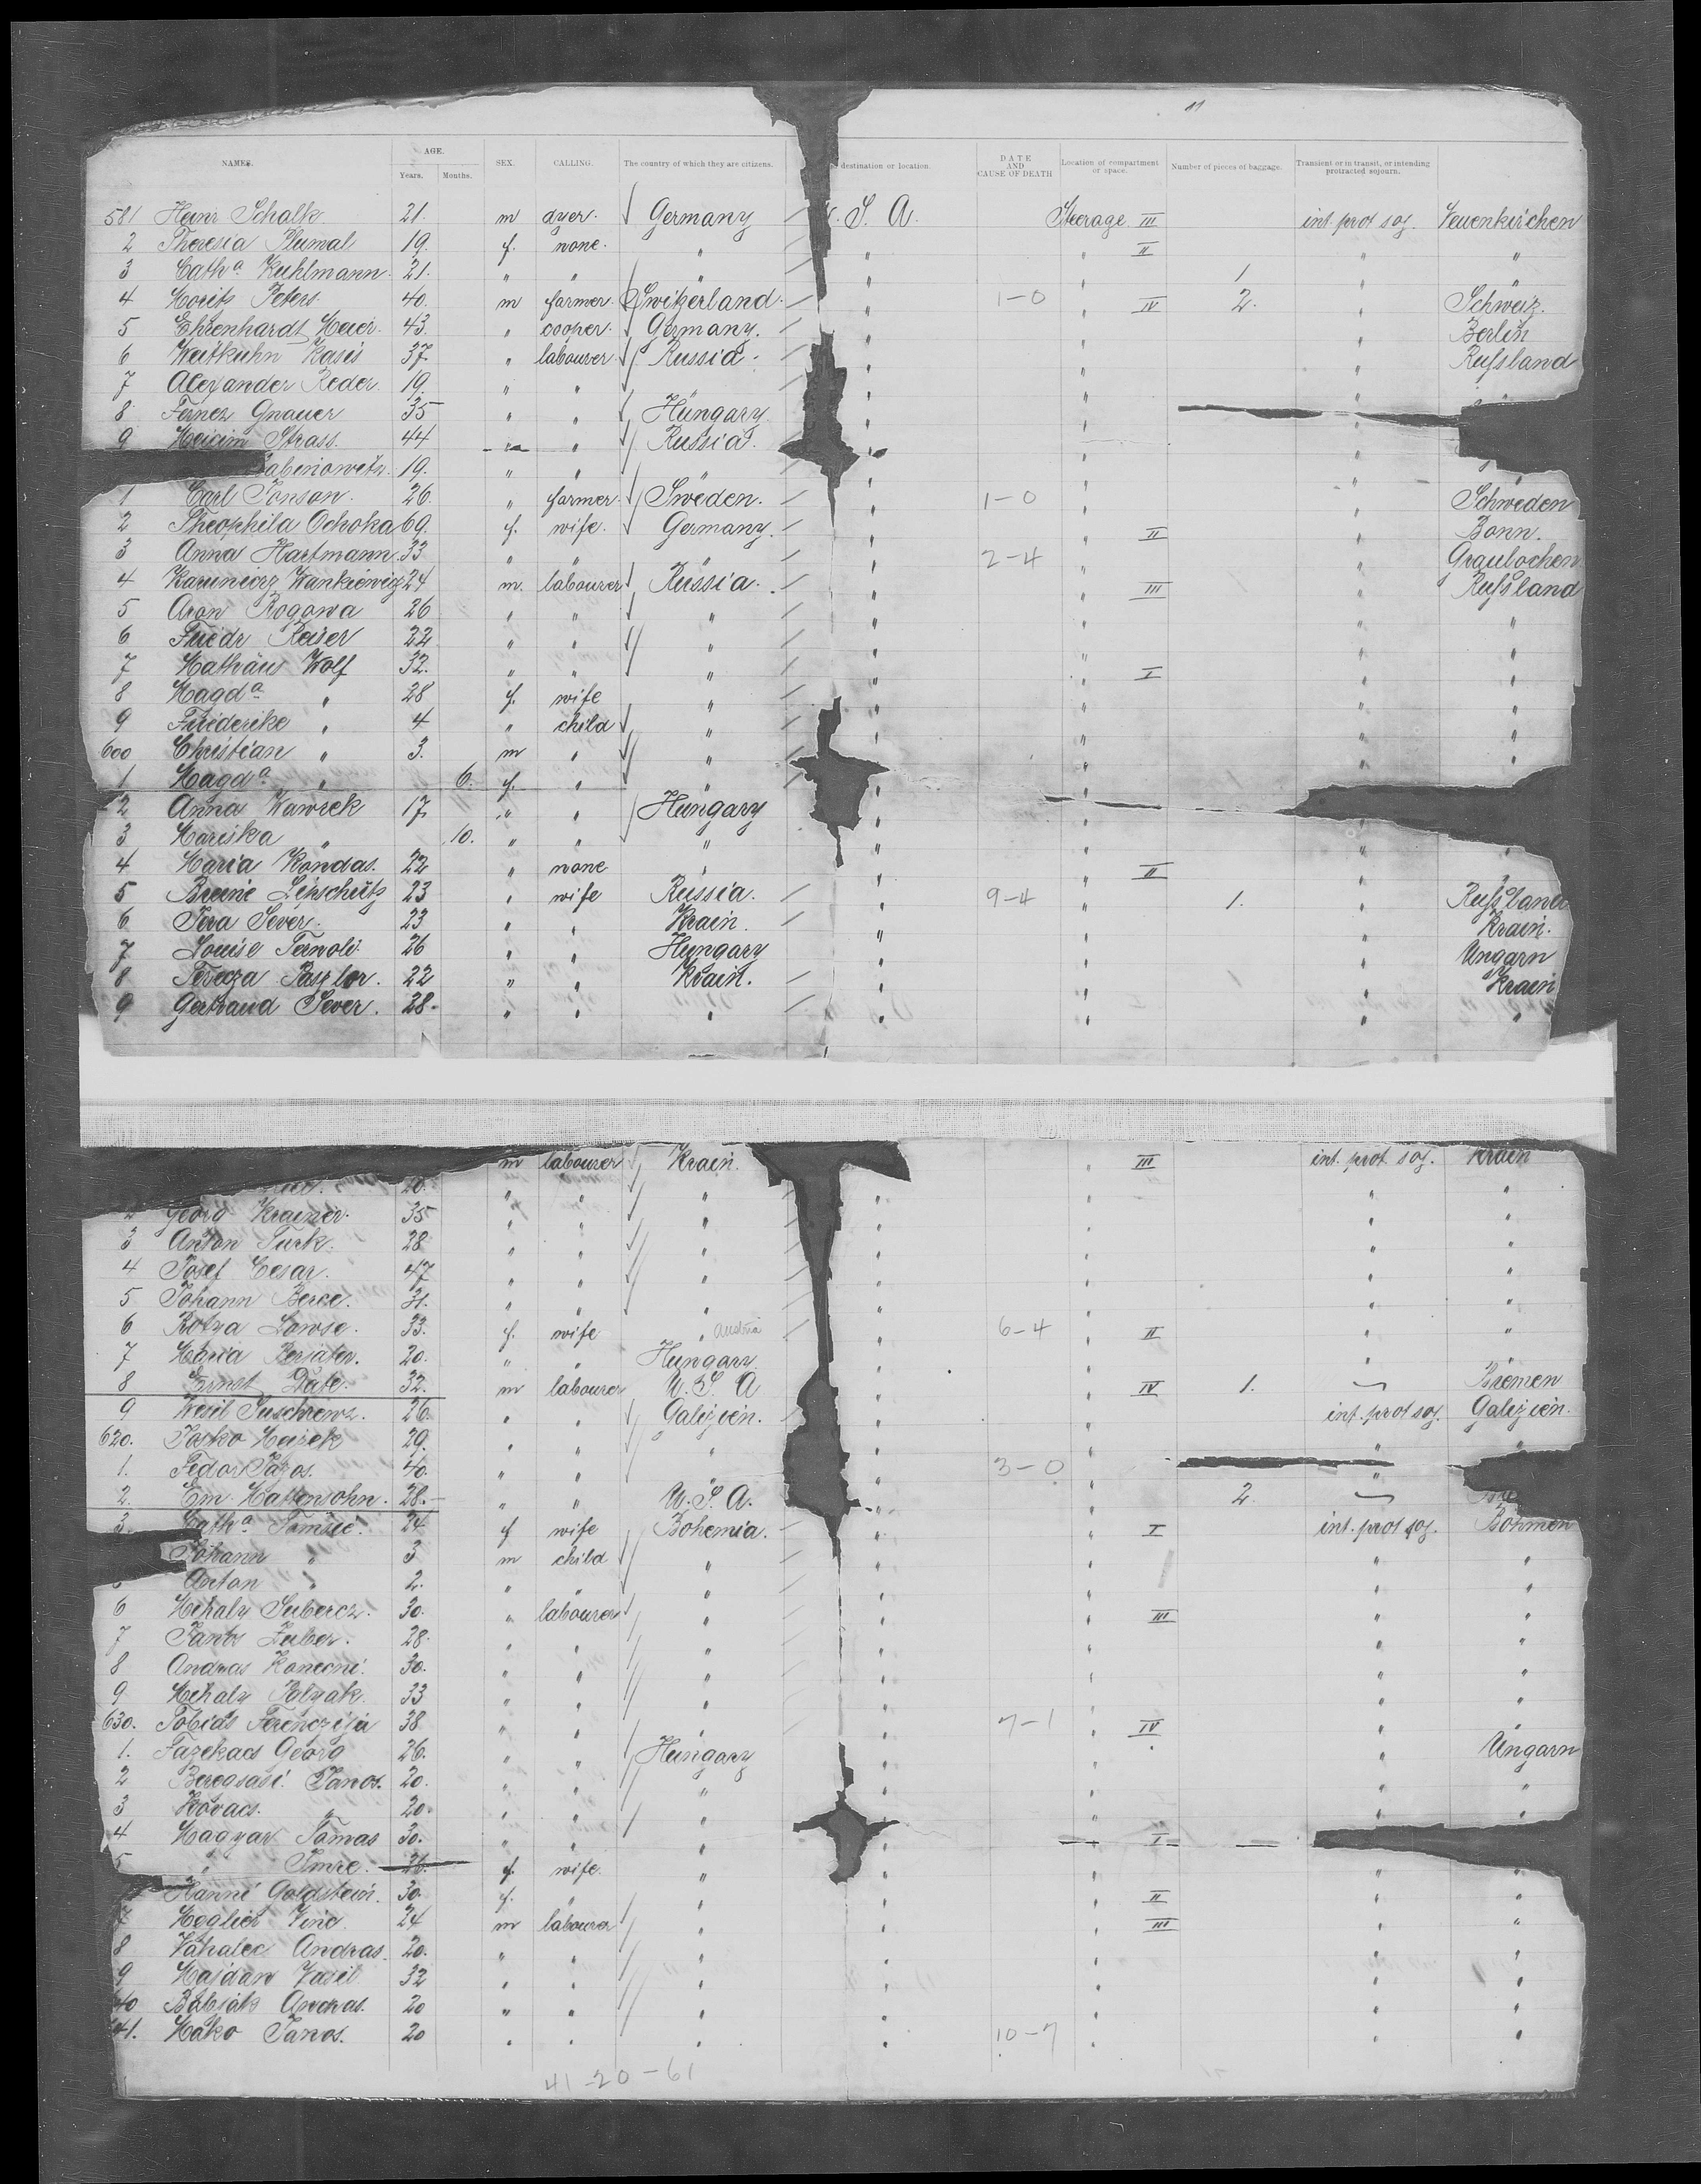 11
NAMES. AGE. Years. Months. SEX. CALLING. The country of which they are citizens. destination or location. DATE AND CAUSE OF DEATH Location of compartment or space. Number of pieces of baggage. Transient or in transit, or intending protracted sojourn.
581 Heinr Schalk 21. m dyer. Germany S. A. Steerage III int. prot soj. Neuenkirchen
2 Theresia Plumal 19. f. none. " " " II " "
3 Cath a Kuhlmann 21. " " " " " 1 " "
4 Moritz Peters 40. m farmer. Switzerland. " 1-0 " IV 2. " Schweiz.
5 Ehrenhardt Meier. 43. " cooper. Germany. " " " Berlin
6 Kasis 37. " labourer Russia. " " " Russland
7 Alexander Reder. 19. " " " " " "
8 Ferncz Gnauer 35 " " Hungary " " "
9 Strass. 44 " " Russia. " "
19. " " " " "
1 Carl Jonson. 26. " farmer. Sweden. " 1-0 " " Schweden
2 Theophila Ochoka 60. f. wife. Germany. " " II " Bonn.
3 Anna Hartmann 33 " " " " 2-4 " "
4 Wankiewicz 24 m. labourer Russia. " " III " Russland
5 Aron Rogowa 26 " " " " " " "
6 Friedr Reiser 22 " " " " " " "
7 Mathäus Wolf 32. " " " " " I " "
8 Magd a " 28 f. wife " " " " "
9 Friederike " 4 " child " " " " "
600 Christian " 3. m " " " " " "
1 Magd a " 6. f. " " " "
2 Anna Wawrek 17. " " Hungary " "
3 Mariska " 10. " " " " " " "
4 Maria Kondas. 22 " none " " " II " "
5 Lipschütz 23 " wife Russia. " 9-4 " 1. " Russland
6 Sever. 23 " " Krain. " " " Krain.
7 Louise 26 " " Hungary " " " Ungarn
8 Tereza 22 " " Krain. " " " Krain
9 Gertraud Sever. 28. " " " " " " "
m labourer Krain. " III int. prot. soj. Krain
20. " " " " " " "
2 Georg Krainer. 35 " " " " " " "
3 Anton Turk. 28 " " " " " " "
4 Josef Cesar. 47 " " " " " " "
5 Johann Berce. 31. " " " " " " "
6 33. f. wife " Austria " 6-4 " II " "
7 Maria 20. " " Hungary. " " "
8 Ernst Date. 32. m labourer U. S. A " " IV 1. Bremen
9 Wasil 26. " " Galizien. " " int. prot soj. Galizien.
620. 29. " " " " " " "
1. Fedor 40. " " " " 3-0 " "
2. Em. Hattensohn. 28. " " U. S. A. " " 2
3 Cath a Tomsic. 24 f wife Bohemia. " " I int. prot soj. Böhmen
Johann " 3 m child " " " " "
Anton " 2. " " " " " " "
6 Mihaly 30. " labourer " " " III " "
7 Janos 28. " " " " " " "
8 Andras Konecni. 30. " " " " " " "
9 Mihaly Polyak. 33 " " " " " " "
630. Tobias 38 " " " " 7-1 " IV " "
1. Fazekacs Georg 26. " " Hungary " " " Ungarn
2 Beregsasi. Janos. 20. " " " " " " "
3 Kovacs. " 20. " " " " " " "
4 Magyar Tamas 30. " " " " " I
5 " Imre. 26. f. wife. " " " " "
Hanni Goldstein. 30. f. " " " " II " "
7 24 m labourer " " " III " "
8 Andras. 20. " " " " " " "
9 Majdan Vasil 32 " " " " " " "
40 Babiak Andras. 20 " " " " " " "
641. Mako Janos. 20 " " " " 10-7 " " "
41-20-61